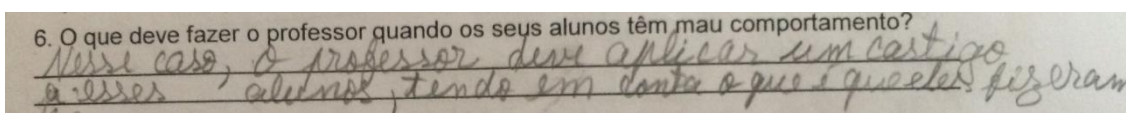 6. O que deve fazer o professor quando os seus alunos têm mau comportamento?
Nesse caso, o professor deve aplicar um castigo
a esses alunos, tendo em conta o que é que eles fizeram